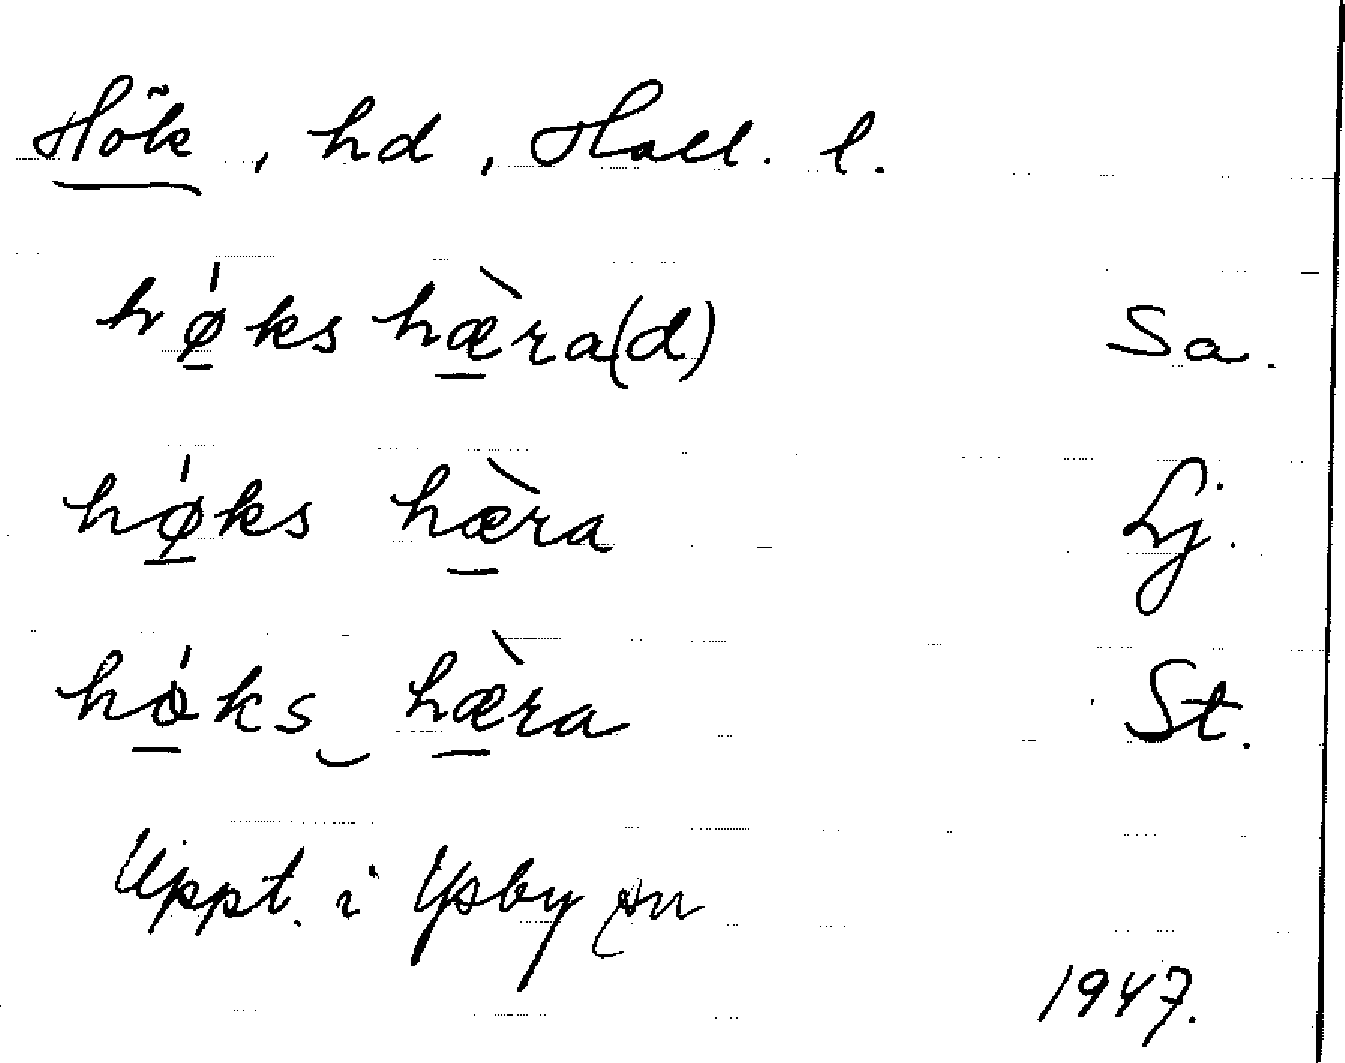 Hök, hd, Hall. l.
hǿ̱ks hæ̱̀ra(d) Sa.
hǿ̱ks hæ̱̀ra Lj.
hö̱́ks‿hæ̱̀ra St.
Uppt. i Ysby sn
1947.